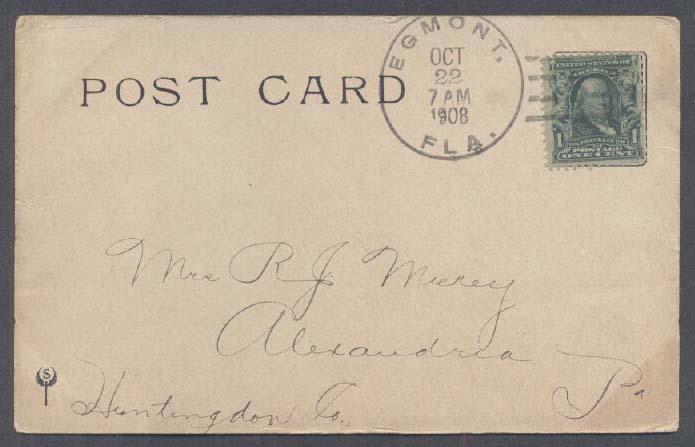 POST CARD
EGMONT.
OCT
22
7 AM
1908
FLA.
UNITED STATES OF
AMERICA
1 1
POSTAGE
ONE CENT
Mrs R J
Alexandria
Huntingdon Co., Pa
S